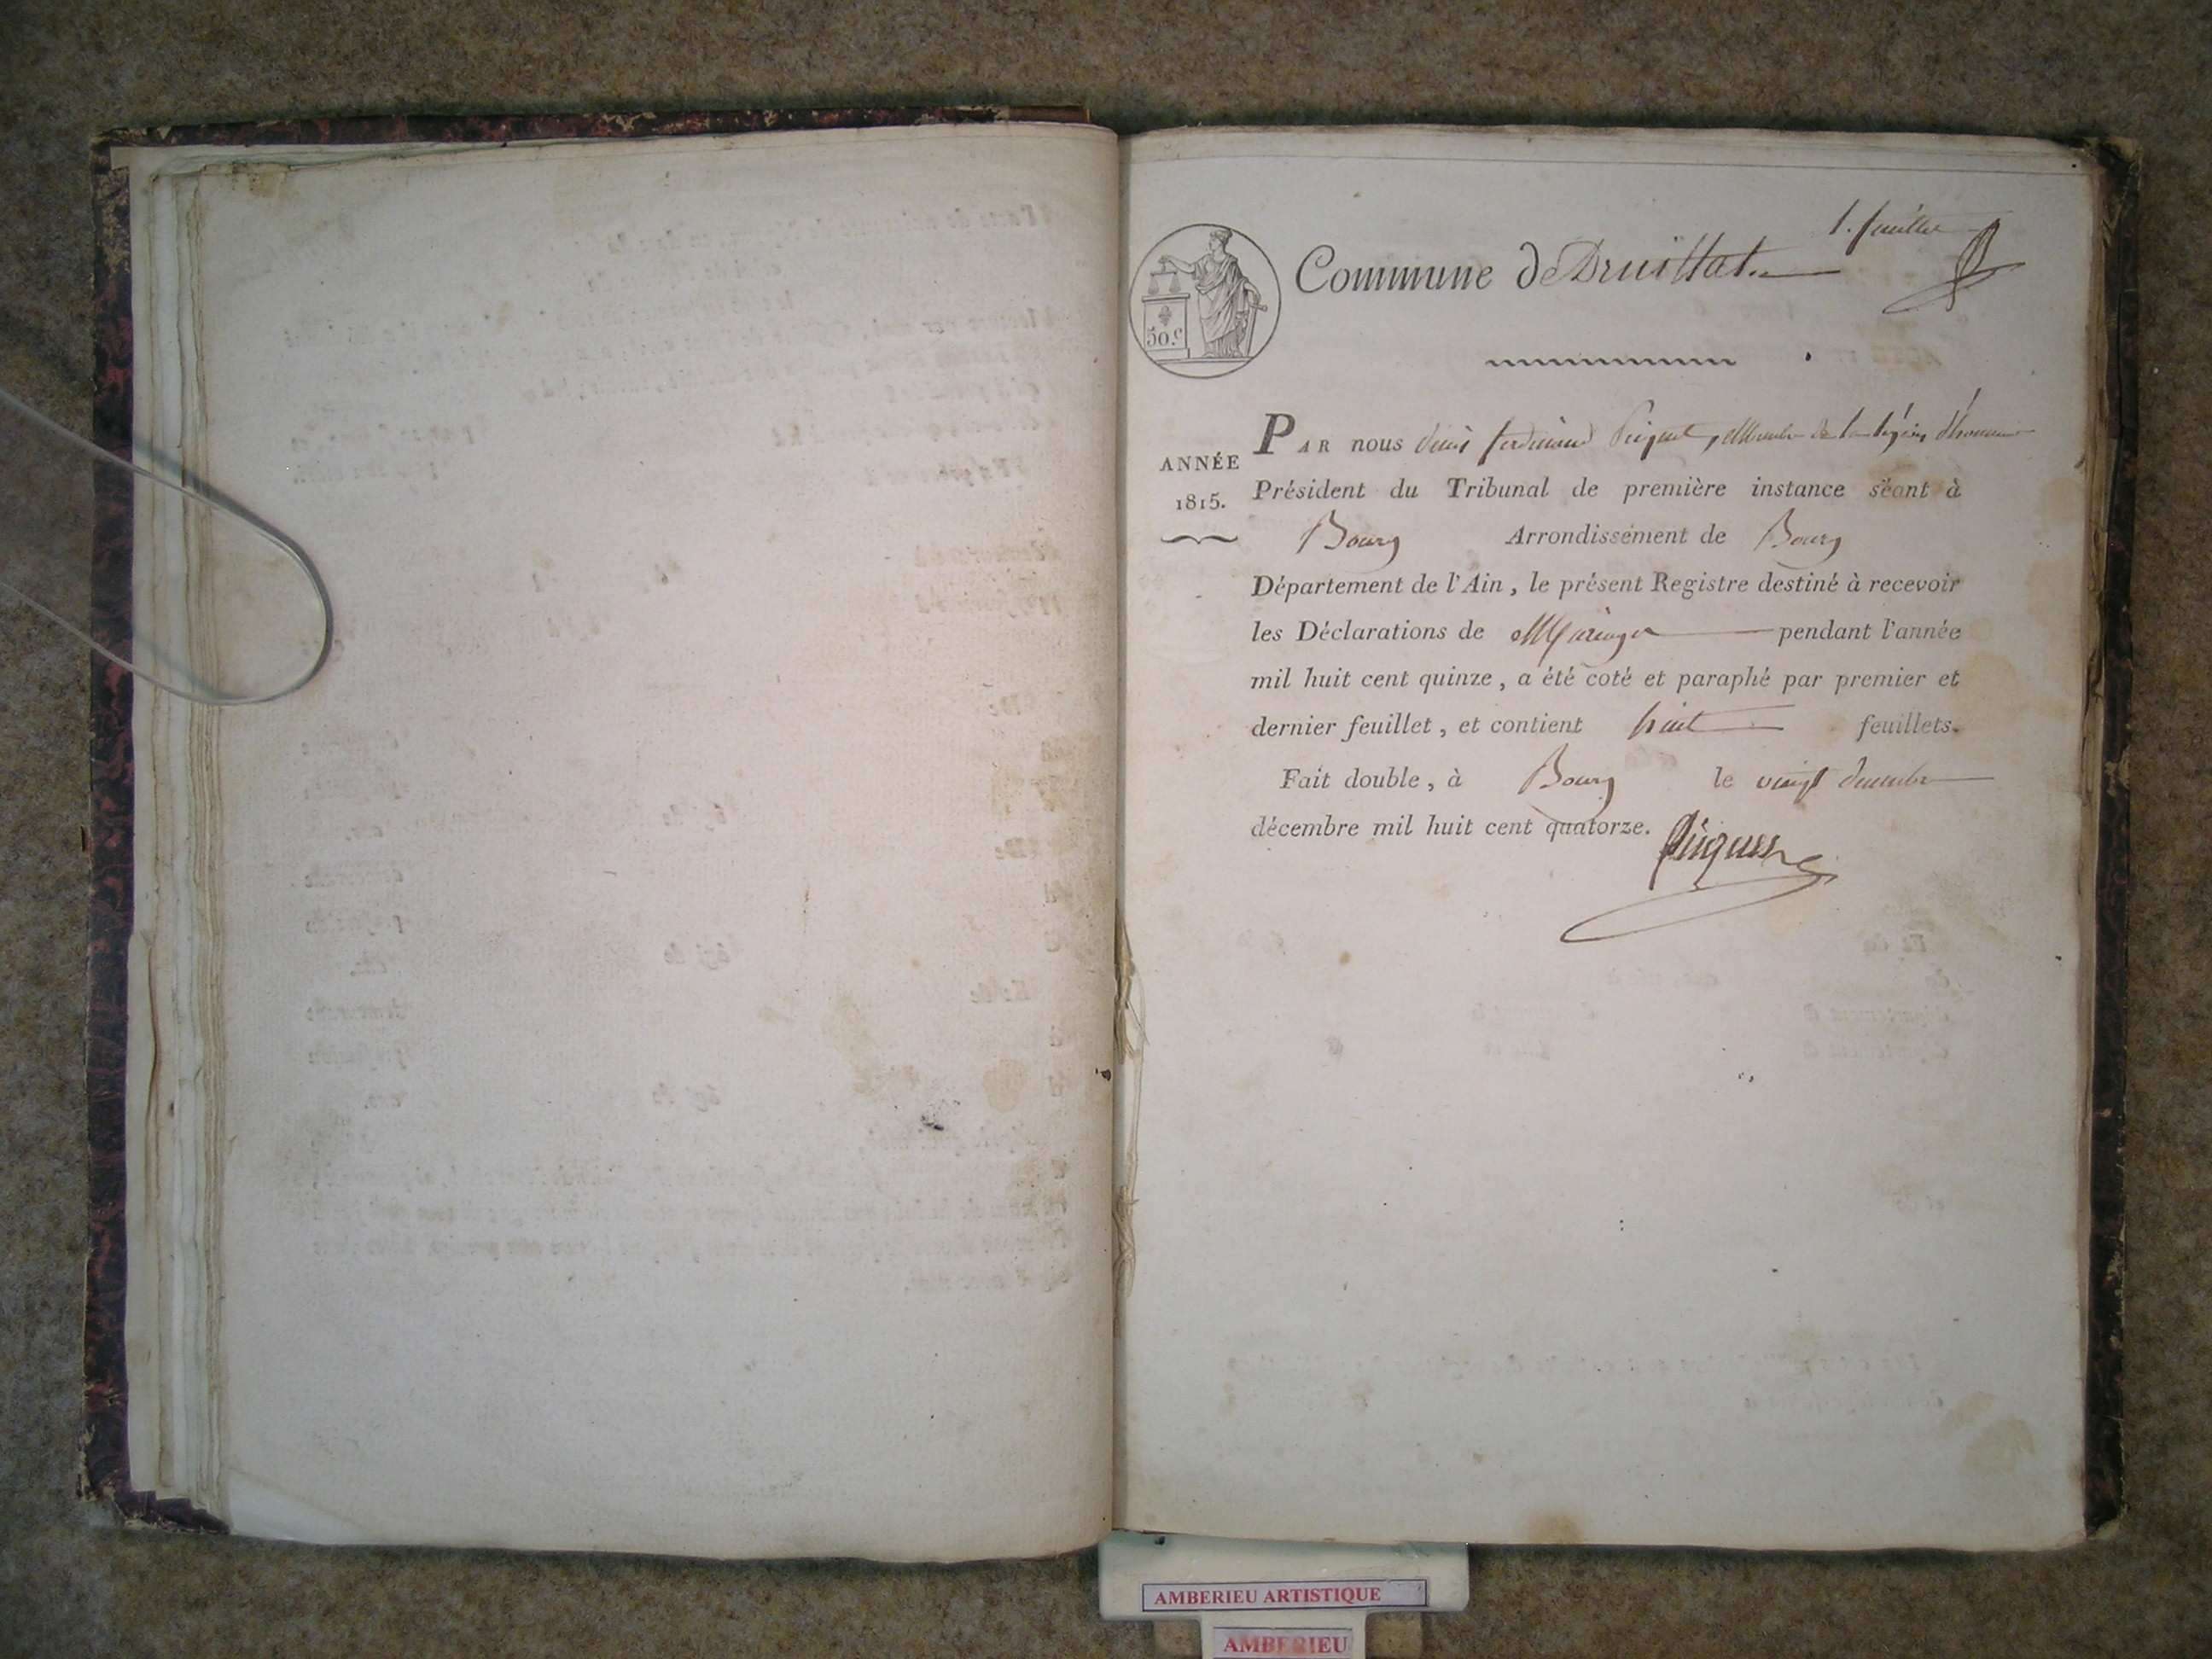 1. feuillet
Commune de Druillat.
50.c
ANNÉE
1815.
PAR nous denis ferdinand Piquet, Membre de la légion d'honneur
Président du Tribunal de première instance séant à
Bourg Arrondissement de Bourg
Département de l'Ain, le présent Registre destiné à recevoir
les Déclarations de Mariage pendant l'année
mil huit cent quinze, a été coté et paraphé par premier et
dernier feuillet, et contient huit feuillets.
Fait double, à Bourg le vingt decembre
décembre mil huit cent quatorze.
AMBERIEU ARTISTIQUE
AMBERIEU